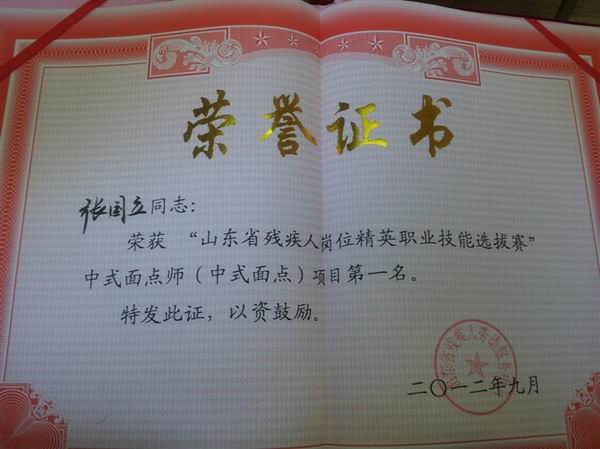 荣誉证书
张国立同志：
荣获 “山东省残疾人岗位精英职业技能选拔赛”
中式面点师（中式面点）项目第一名。
特发此证，以资鼓励。
二〇一二年九月